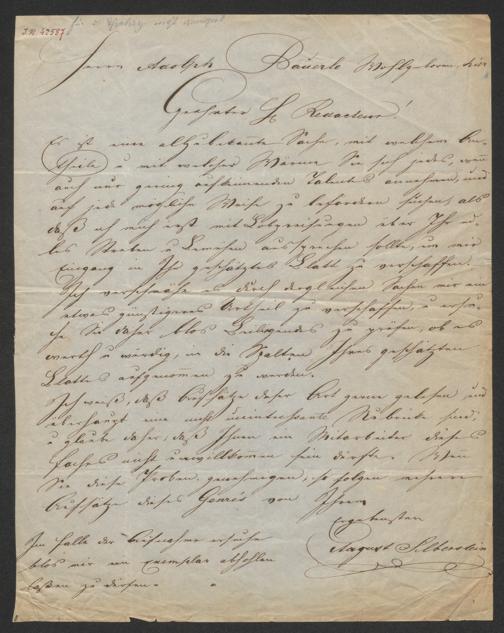 I.N. 42587
Herrn Adolph Bäuerle Wohlgeboren, hier
Geehrter H Redacteur!
Es ist eine allzubekannte Sache, mit welchem An-
theile u mit welcher Wärme Sie sich jedes, wenn
auch nur gering aufkeimenden Talentes annehmen, und
auf jede mögliche Weise zu befördern suchen, als
daß ich mich erst mit Lobpreisungen über Ihr ed-
les Streben u Bemühen aussprechen sollte, um mir
Eingang in Ihr geschätztes Blatt zu verschaffen.
Ich verschmähe es durch dergleichen Sachen mir ein
etwas günstigeres Urtheil zu verschaffen, u ersu-
che Sie daher blos Beiliegendes zu prüfen, ob es
werth u würdig, in die Spalten Ihres geschätzten
Blattes aufgenommen zu werden.
Ich weiß, daß Aufsätze dieser Art gerne gelesen und
überhaupt eine nicht uninteressante Rubrik sind,
u glaube daher, daß Ihnen ein Mitarbeiter dieses
Faches nicht unwillkommen sein dürfte. Wenn
Sie diese Proben genehmigen, so folgen mehrere
Aufsätze dieses Genres von Ihrem
Ergebensten
August Silberstein
Im Falle der Aufnahme ersuche
blos mir ein Exemplar abholen
lassen zu dürfen.